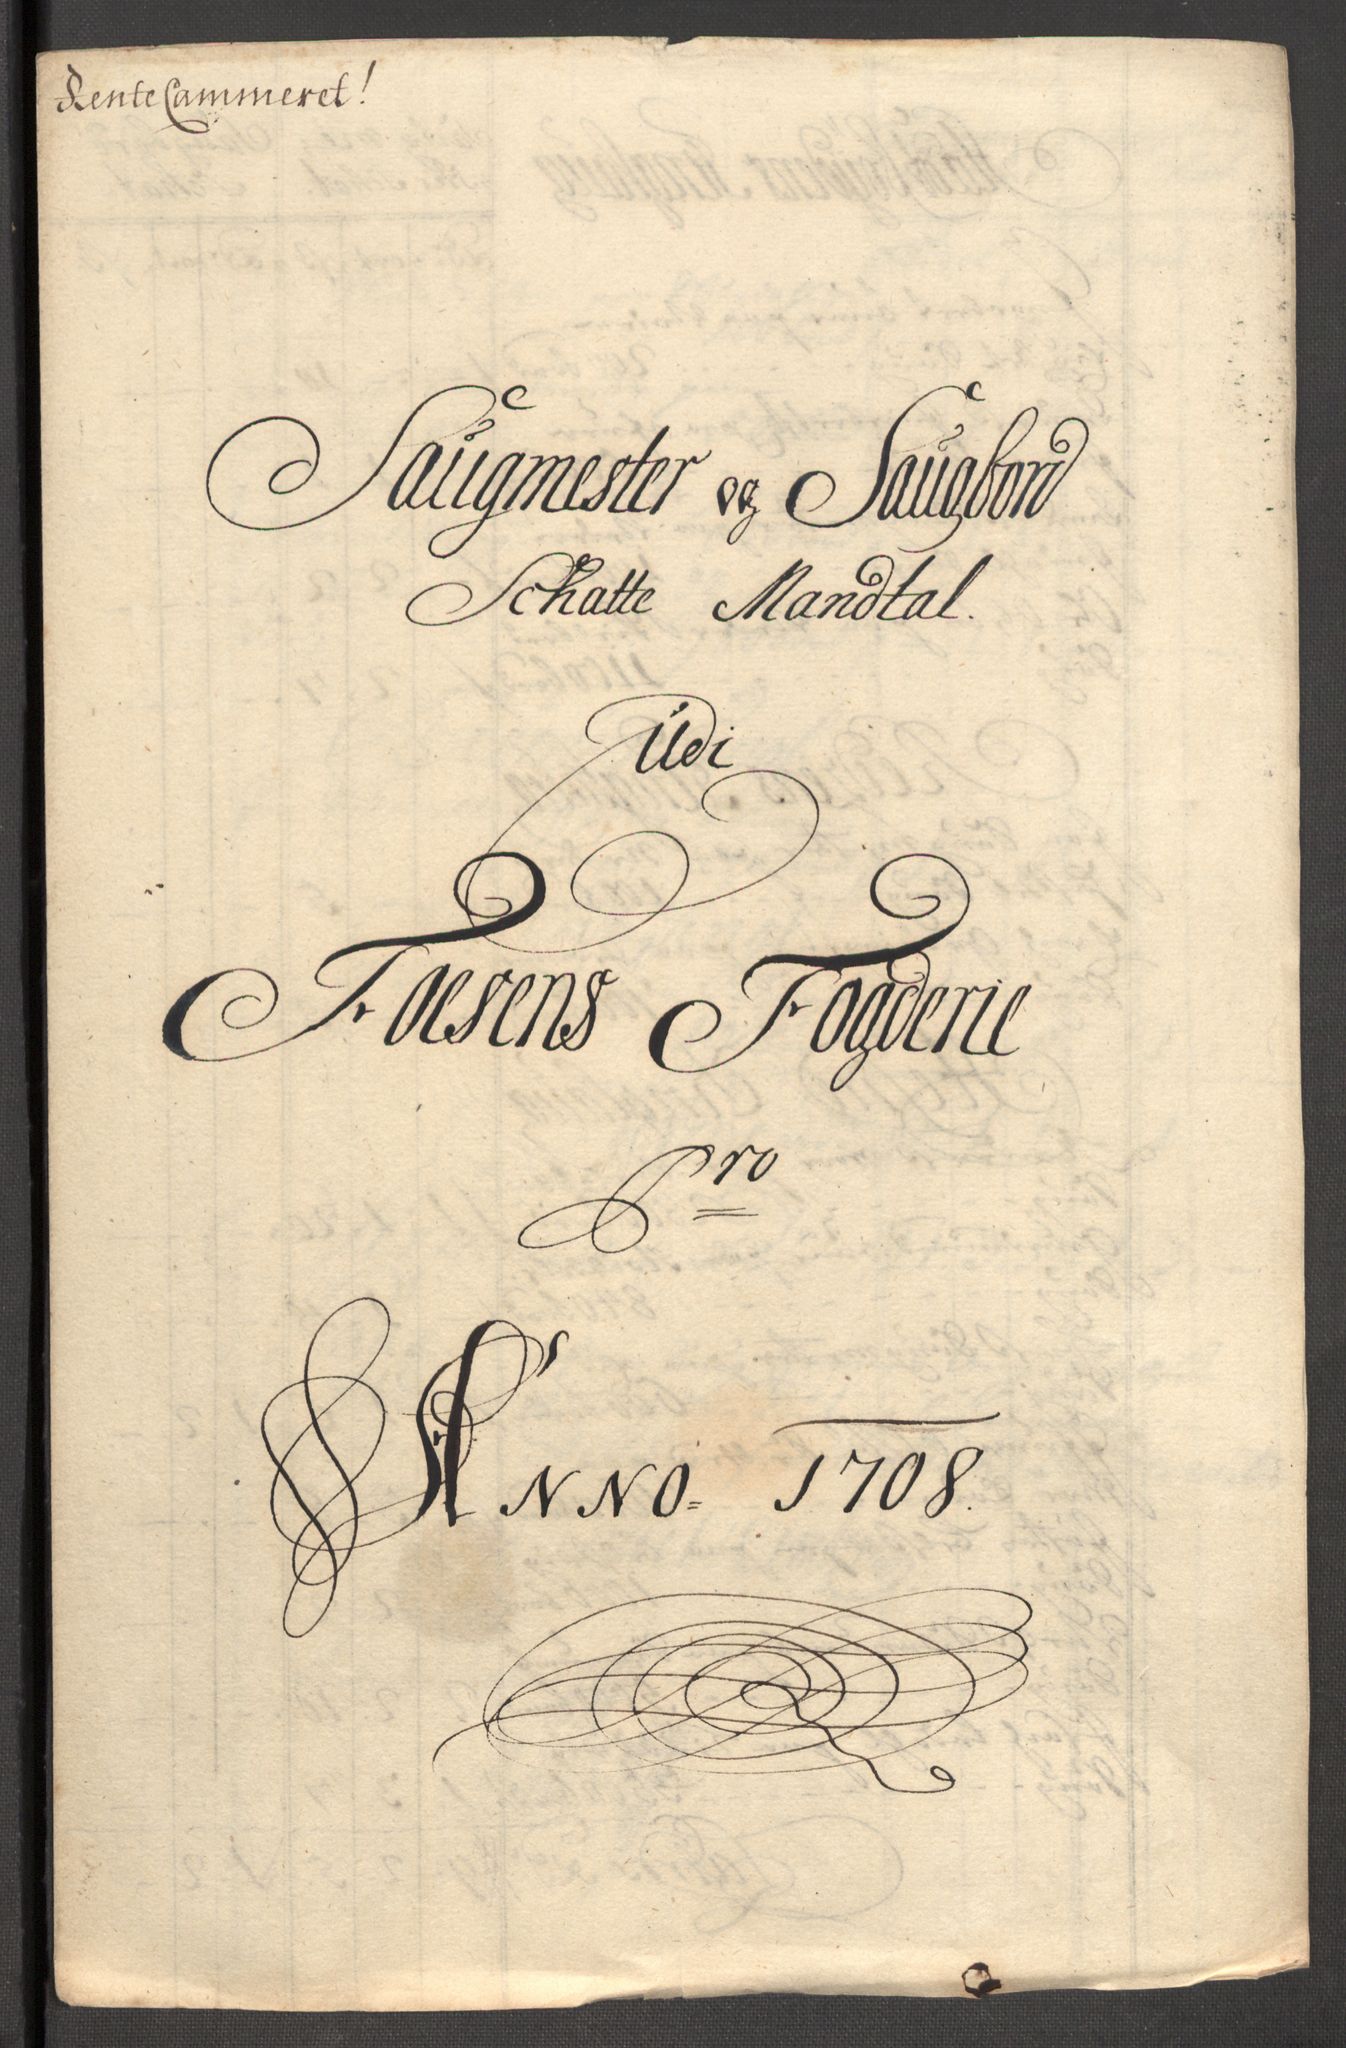 RenteCammeret!
Saugmester og Saugbord
Schatte Mandtal.
Udi
Foesens Fogderie
Pro
ANNO= 1708.